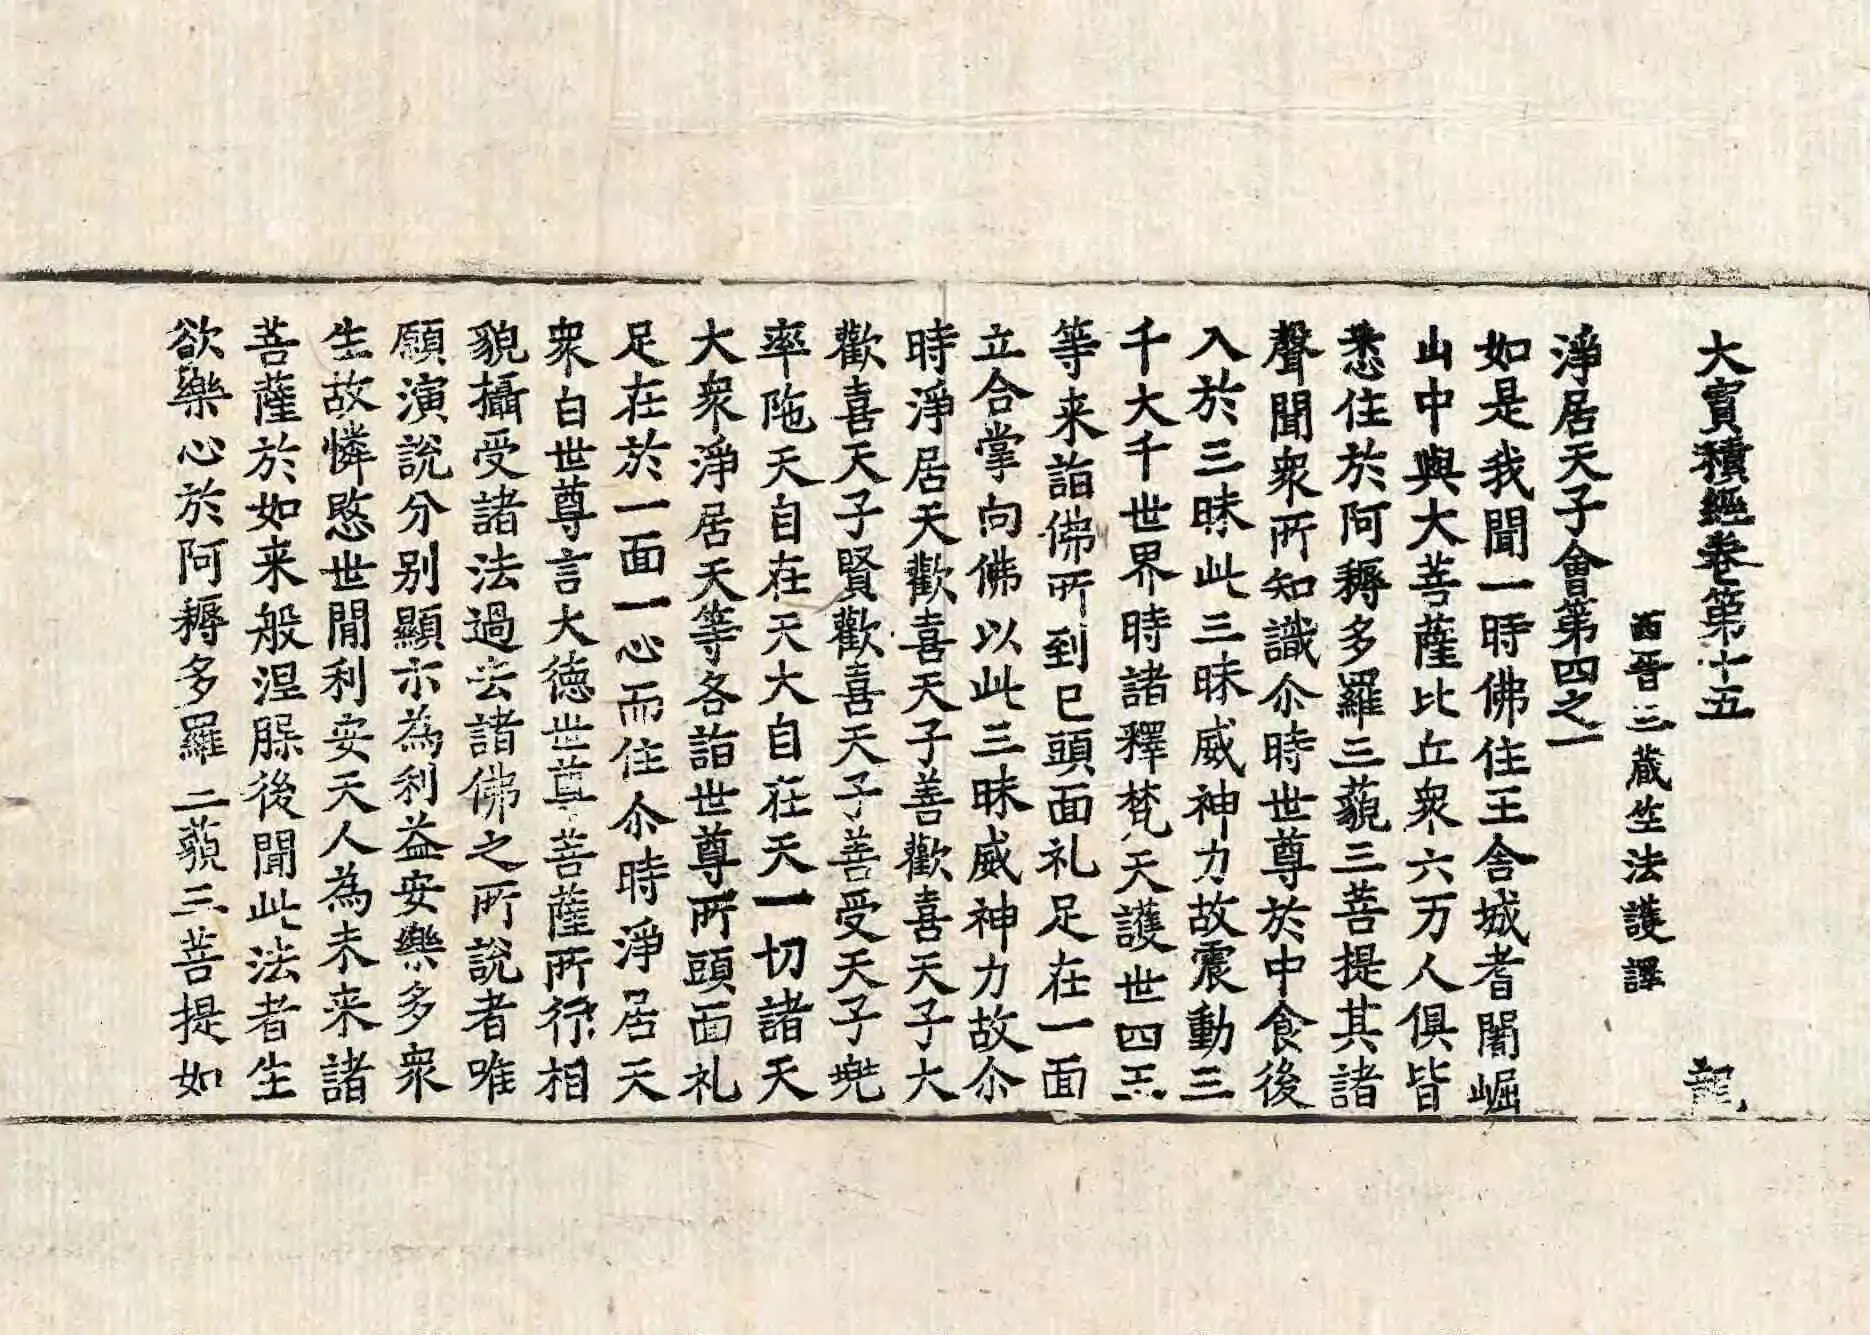 大寶積經卷第十五 龍
西晉三藏竺法護譯
淨居天子會第四之一
如是我聞一時佛住王舍城耆闍崛
山中與大菩薩比丘衆六万人俱皆
悉住於阿耨多羅三藐三菩提其諸
聲聞衆所知識尒時世尊於中食後
入於三昧此三昧威神力故震動三
千大千世界時諸釋梵天護世四王
等来詣佛所到已頭面礼足在一面
立合掌向佛以此三昧威神力故尒
時淨居天歡喜天子善歡喜天子大
歡喜天子賢歡喜天子善受天子兠
率陁天自在天大自在天一切諸天
大衆淨居天等各詣世尊所頭面礼
足在於一面一心而住尒時淨居天
衆白世尊言大德世尊菩薩所行相
貌攝受諸法過去諸佛之所說者唯
願演說分别顯示為利益安樂多衆
生故憐愍世間利安天人為未来諸
菩薩於如来般涅槃後聞此法者生
欲樂心於阿耨多羅三藐三菩提如